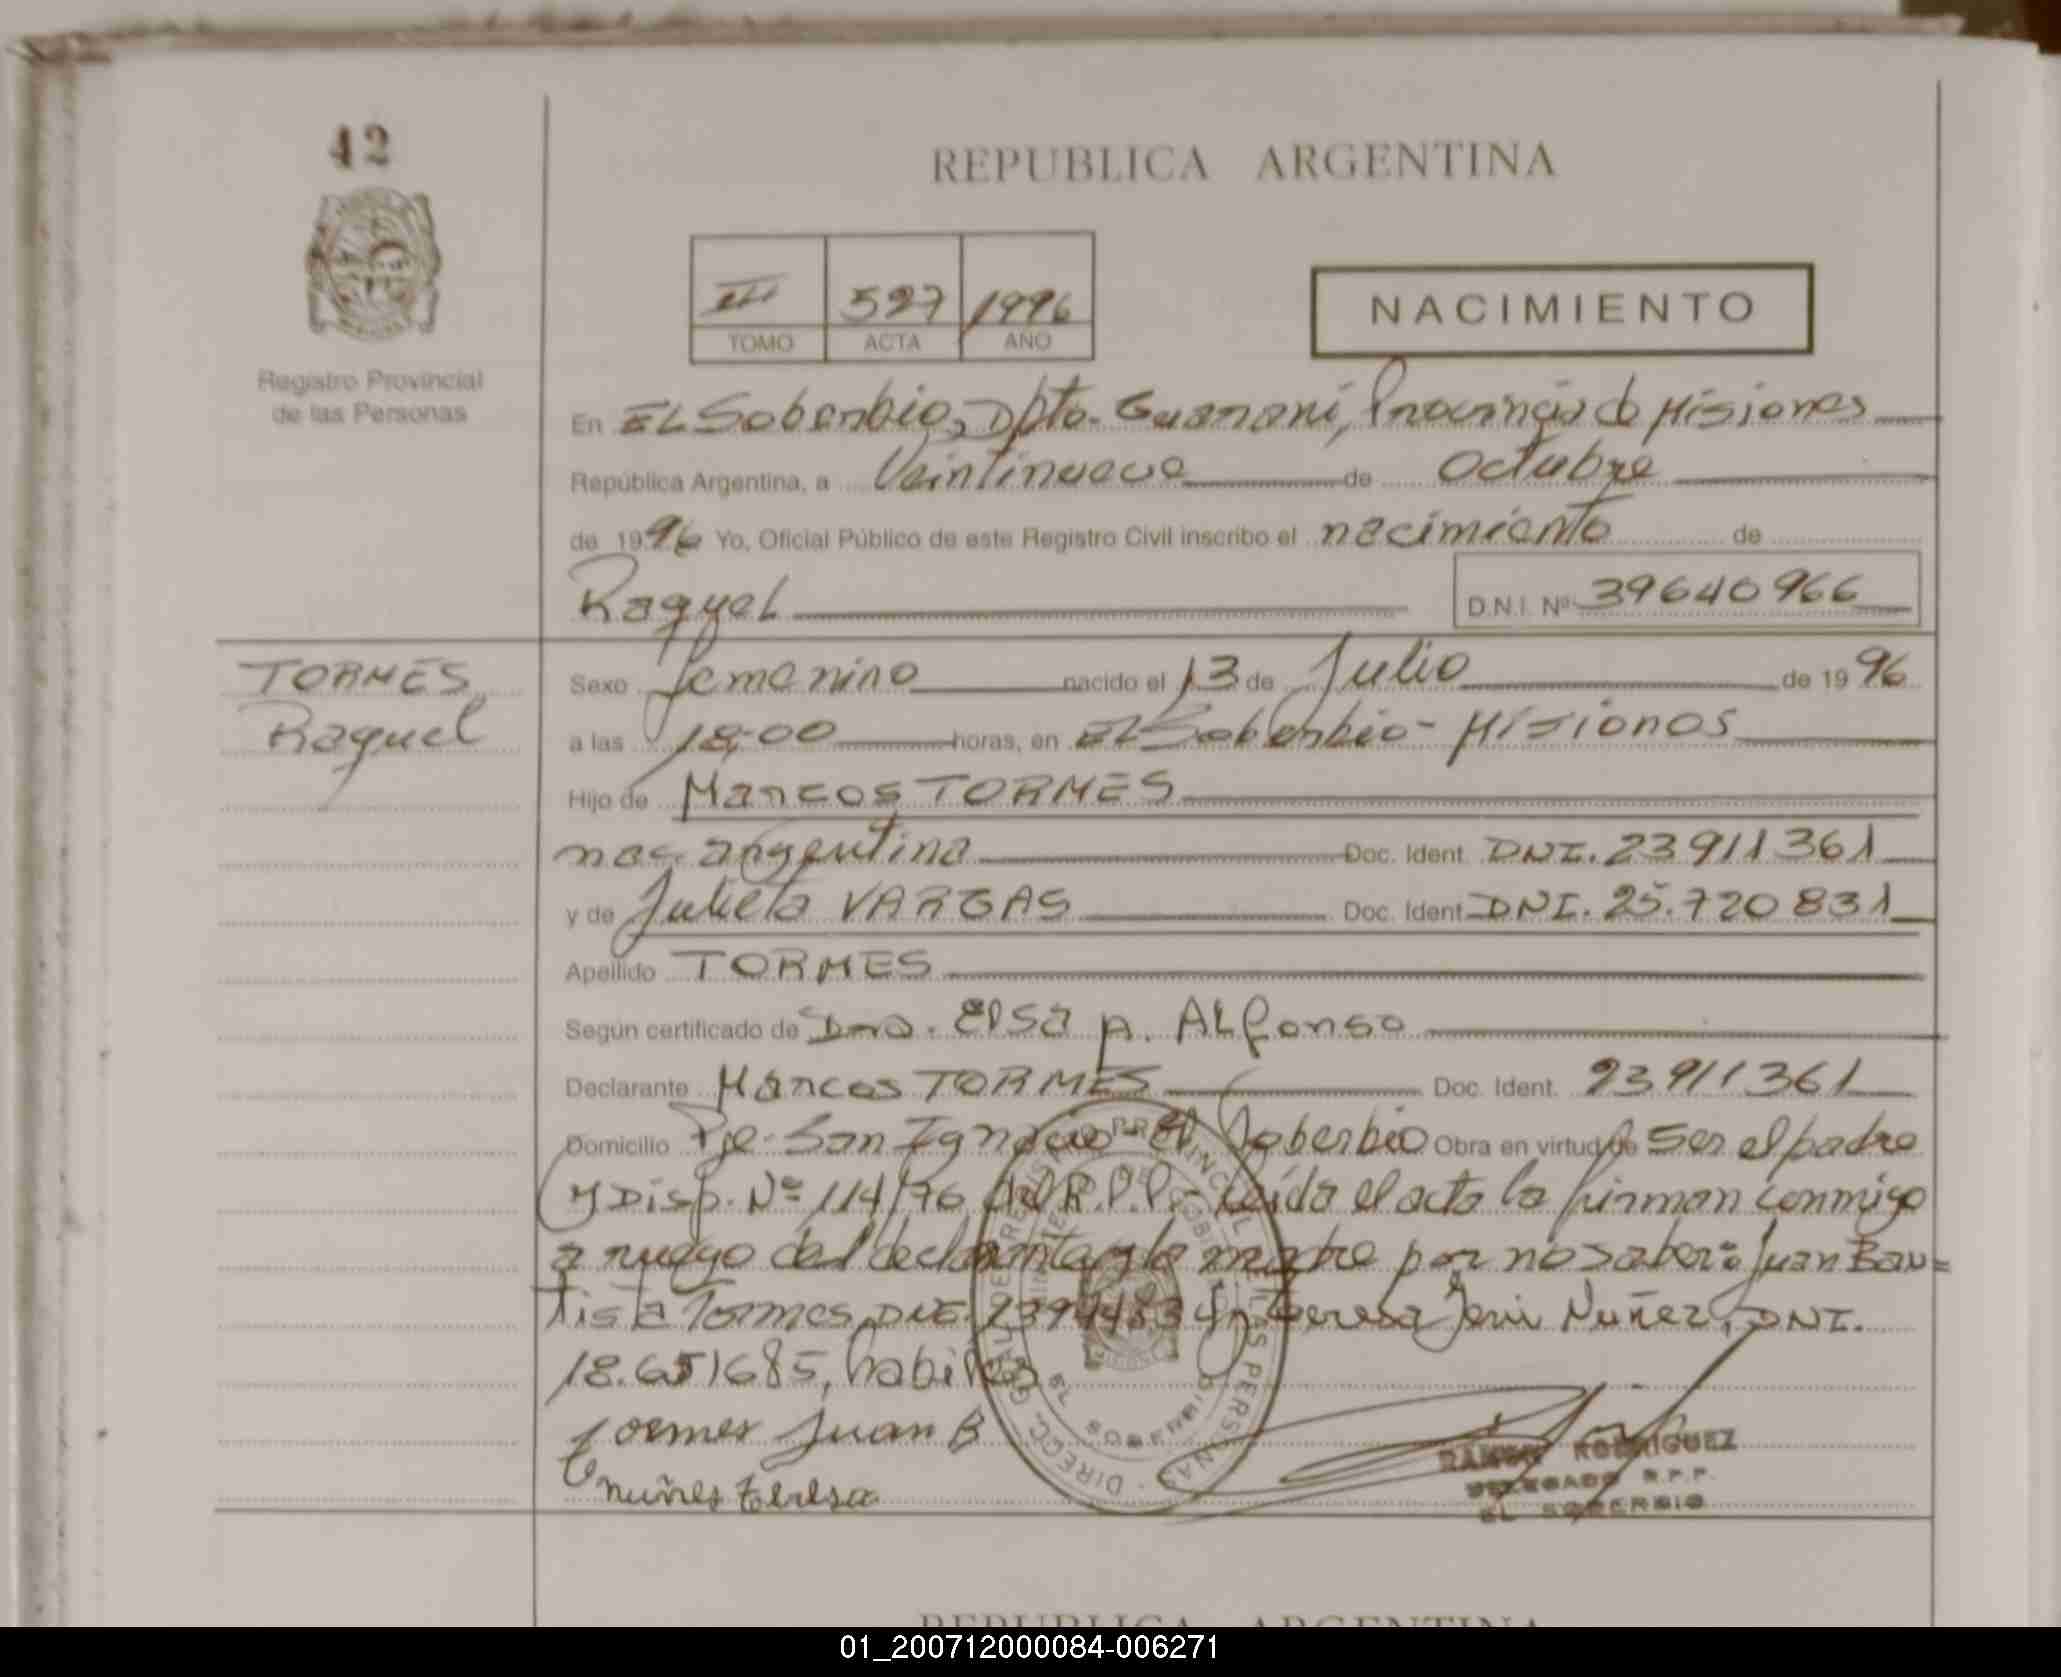 42
REPUBLICA ARGENTINA
III 527 1996
TOMO ACTA AÑO
NACIMIENTO
Registro Provincial
de las Personas
En EL Soberbio, Dpto. Guarani, Provincia de Misiones
República Argentina, a Veintinueve de Octubre
de 1996 Yo, Oficial Público de este Registro Civil inscribo el nacimiento de
Raquel D.N.I. Nº 39640966
TORMES
Raquel
Sexo femenino nacido el 13 de Julio de 1996
a las 18:00 horas, en EL Soberbio - Misiones
Hijo de Marcos TORMES
nac. argentina Doc. Ident. DNI. 23911361
y de Julieta VARGAS Doc. Ident DNI. 25.720831
Apellido TORMES
Según certificado de Dra. Elsa A. Alfonso
Declarante Marcos TORMES Doc. Ident. 23911361
Domicilio Pje. San Ignacio - El Soberbio Obra en virtud de ser el padre
y Disp. Nº 114/76 del R.P.P. - Leída el acta la firman conmigo
a ruego del declarante y la madre por no saber: Juan Bau=
tista Tormes, DNI. Teresa Nuñez, DNI.
18.651685, habiles
Tormes Juan B
Nuñes Teresa
DIRECC. GRAL DE REGISTRO PROVINCIAL DE LAS PERSONAS
MINISTERIO DE GOBIERNO
EL SOBERBIO
RAMON RODRIGUEZ
DELEGADO R.P.P.
EL SOBERBIO
REPUBLICA ARGENTINA
01_200712000084-006271